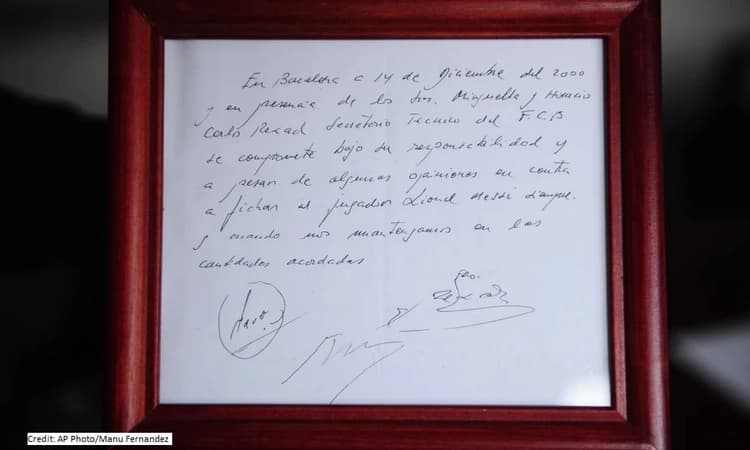 En Barcelona a 14 de Diciembre del 2000
y en presencia de los Sres. Minguella y Horacio
Carlos Rexach Secretario Técnico del F.C.B
se compromete bajo su responsabilidad y
a pesar de algunas opiniones en contra
a fichar al jugador Lionel Messi siempre
y cuando nos mantengamos en las
cantidades acordadas
Credit: AP Photo/Manu Fernandez